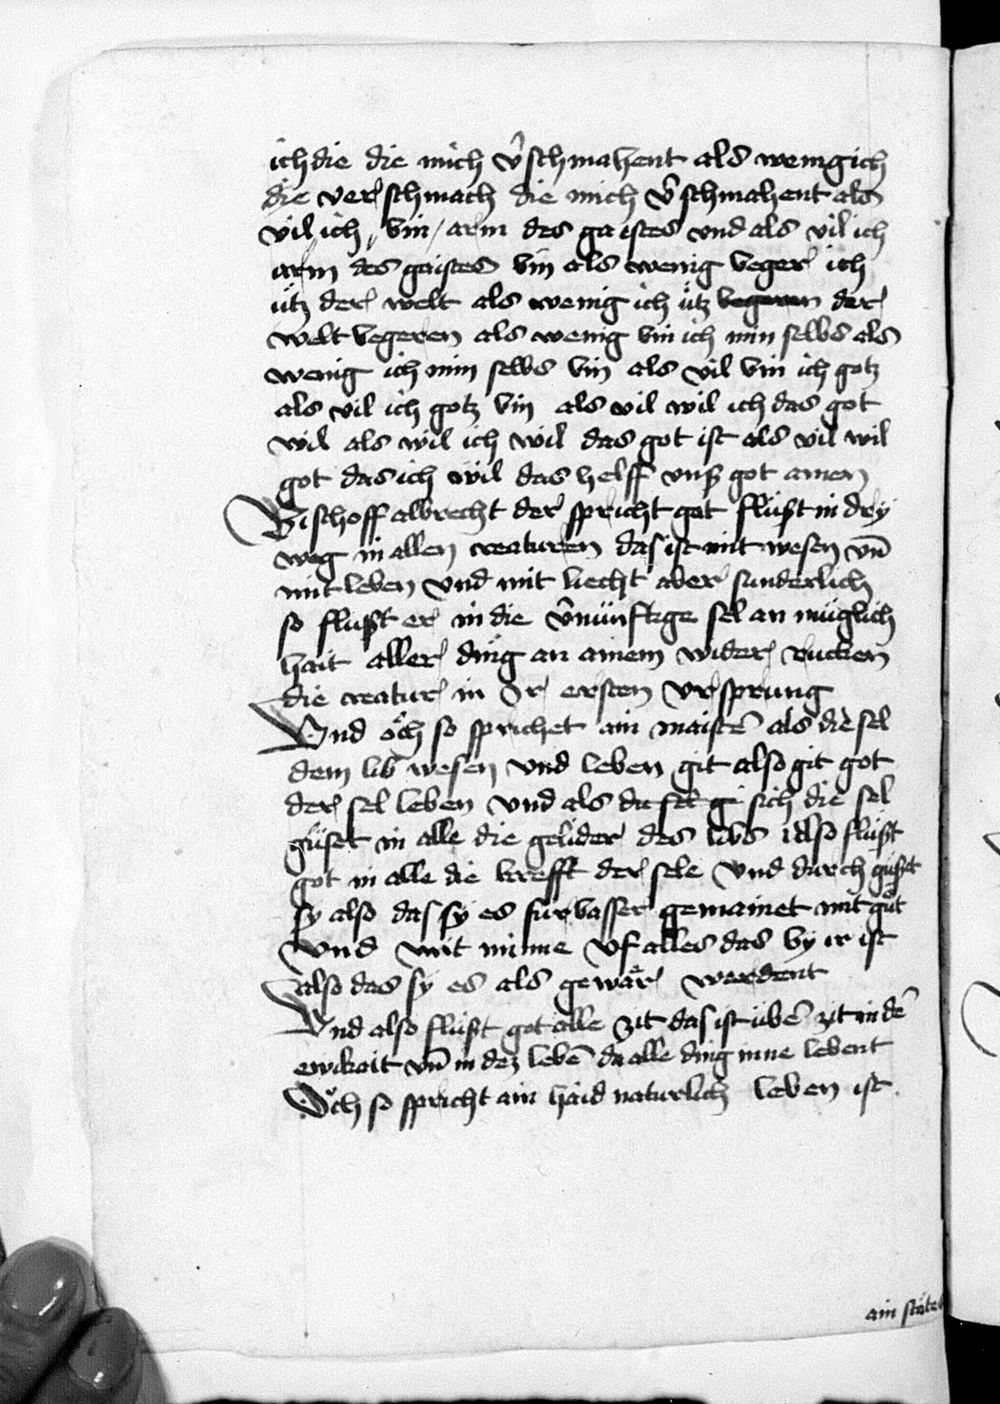 ich die die mich v̂schmahent als wenig ich
die verschmach die mich v̂schmahent als
vil ich bin arm des gaistes vnd als vil ich
arm des gaistes bin als wenig beger ich
ütz der welt als wenig ich ütz begeren der
welt begeren als wenig bin ich min selbs als
wenig ich min selbs bin als vil bin ich gotz
als vil ich gotz bin als vil wil ich das got
wil als wil ich wil das got ist als vil wil
got das ich wil das helff vnß got amen
Bischoff albrecht der spricht got flüßt in dry
weg in allen creaturen das ist mit wesen vn̄
mit leben vnd mit liecht aber sunderlich
so flußt er in die v̂nünftige sel an müglich
hait aller ding an ainem wider rucken
die creatur in Ir ersten vrsprung
Vnd öch so sprichet ain maist̄ als die sel
dem lib wesen vnd leben git also git got
der sel leben vnd als die sel gi sich die sel
güset in alle die gelider des libs Also flüßt
got in alle die krefft der sele vnd durch güßet
sy also das sy es fürbasser gemainet mit güt
vnd mit minne vf alles das by ir ist
also das sy es als gewar werdent
Vnd also flüßt got alle zit das ist üb̄ zit in dē
ewikait vn̄ in dez lebē da alle ding inne lebent
Öch so spricht ain haid naturlich leben ist
ain stäte